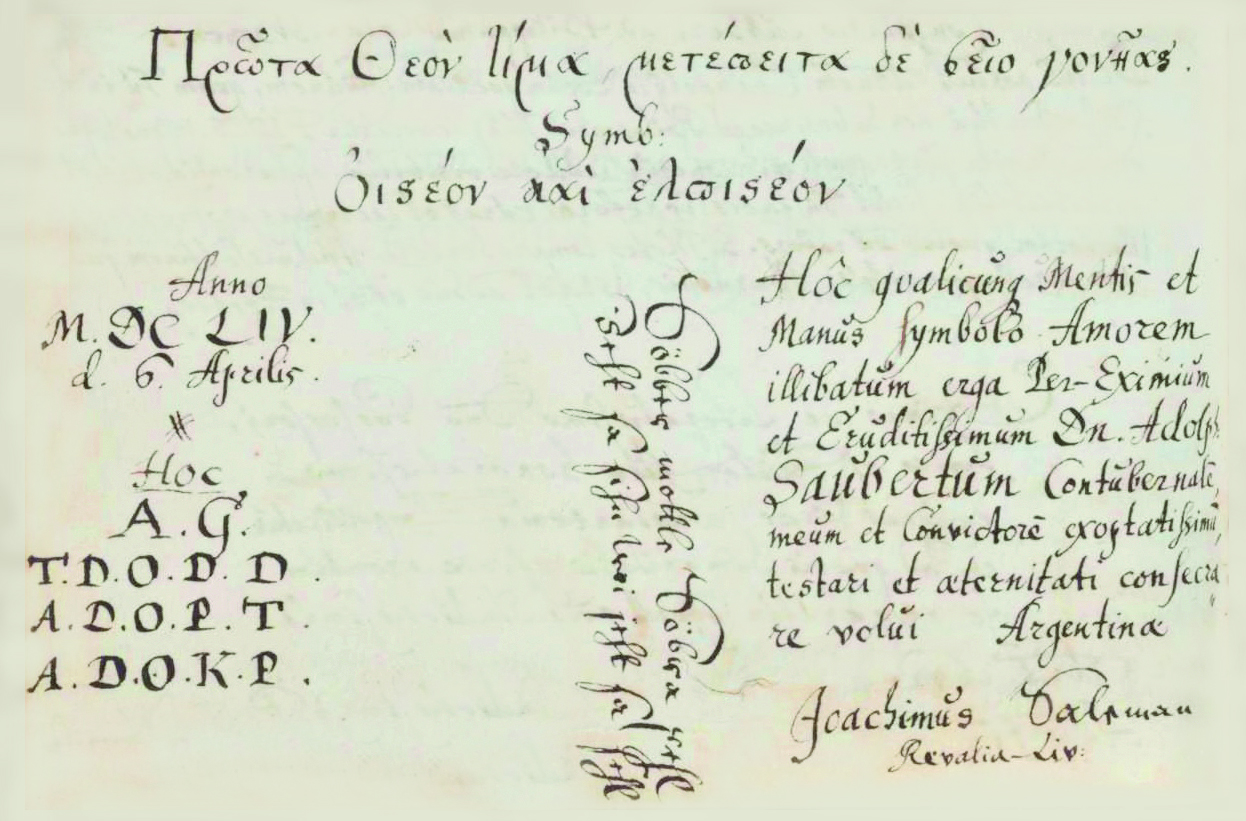 Πρῶτα Θεὸν τίμα, μετέπειτα δὲ σεῖο γονῆας.
Symb:
Ὀιϛέον καὶ ἐλπιϛέον
Anno
M. DC LIV.
d. 6. Aprilis.
Hoc
A. G.
T. D. O. D. D.
A. D. O. P. T.
A. D. O. K. P.
motlle Söbbra
sa woi sa
Hôc qvalicunq Mentis et
Manus symbolo Amorem
illibatum erga Per-Eximium
et Eruditissimum Dn. Adolph.
Saubertum Contubernalē,
meum et Convictorē exoptatissimū,
testari et æternitati consecra
re volui Argentinæ
Joachimus Saleman
Revalia-Liv: